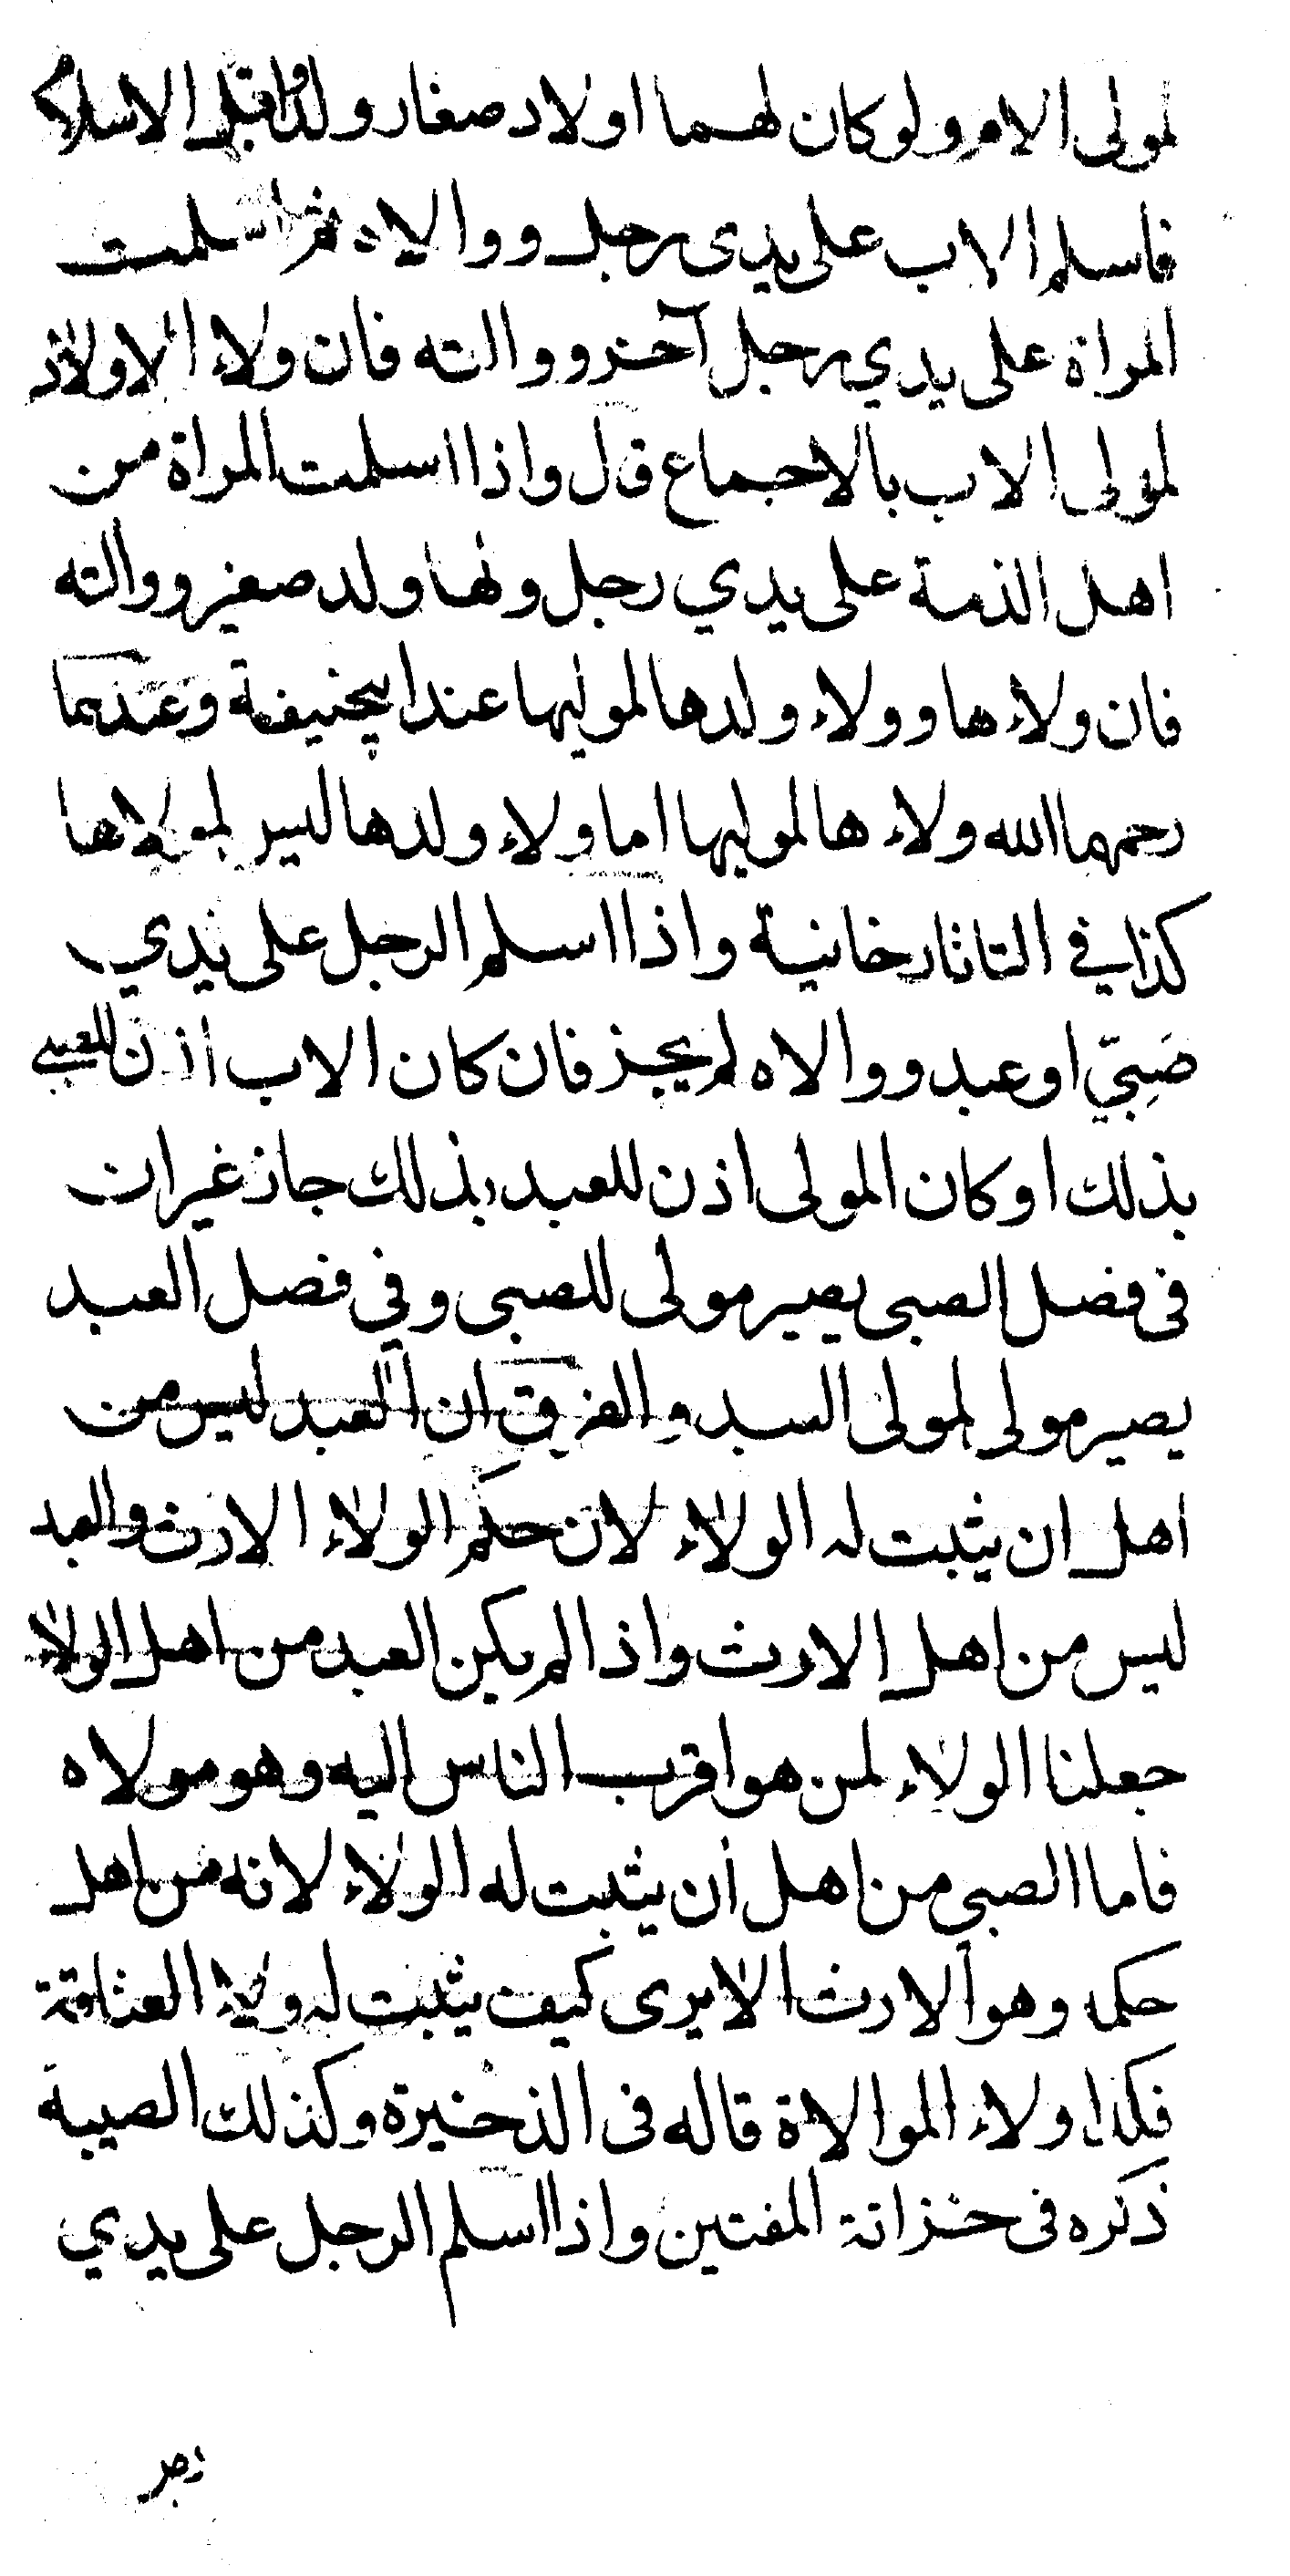 لمولى الام ولو كان لهما اولاد صغار ولدوا قبل الاسلام
فاسلم الاب على يدى رجل ووالاه ثم اسلمت
المراة على يدي رجل آخر ووالته فان ولاء الاولاد
لمولى الاب بالاجماع قال واذا اسلمت المراة من
اهل الذمة على يدي رجل ولها ولد صغير ووالته
فان ولاءها وولاء ولدها لموليها عند ابيحنيفة وعندهما
رحمهما الله ولاءها لموليها اما ولاء ولدها ليس لمولاها
كذا في التاتارخانية واذا اسلم الرجل على يدي
صَبِيّ او عبد ووالاه لم يجز فان كان الاب اذن للصبي
بذلك او كان المولى اذن للعبد بذلك جاز غير ان
فى فصل الصبى يصير مولى للصبى وفي فصل العبد
يصير مولى لمولى العبد والفرق ان العبد ليس من
اهل ان يثبت له الولاء لان حكم الولاء الارث والعبد
ليس من اهل الارث واذا لم يكن العبد من اهل الولاء
جعلنا الولاء لمن هو اقرب الناس اليه وهو مولاه
فاما الصبي من اهل ان يثبت له الولاء لانه من اهل
حكمه وهو الارث الا يرى كيف يثبت له ولاء العتاقة
فكذا ولاء الموالاة قاله فى الذخيرة وكذلك الصبية
ذكره فى خزانة المفتين واذا اسلم الرجل على يدي